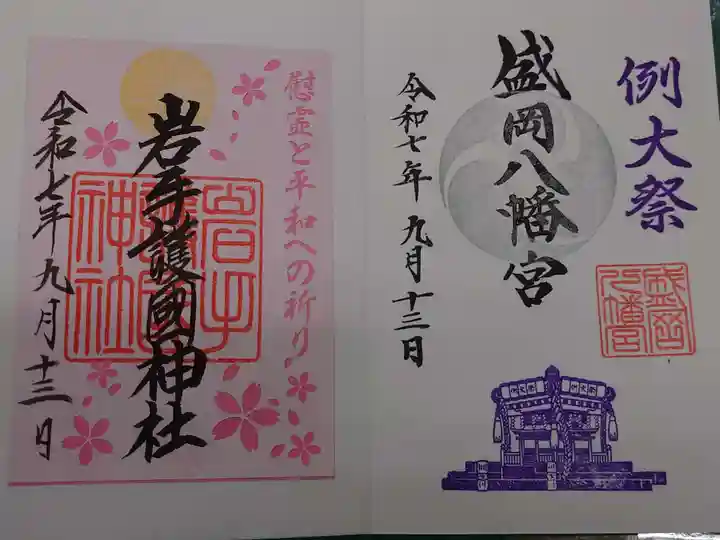 例大祭
盛岡八幡宮
令和七年九月十三日
盛岡八幡宮
慰霊と平和への祈り
岩手護國神社
岩手護國神社
令和七年九月十三日